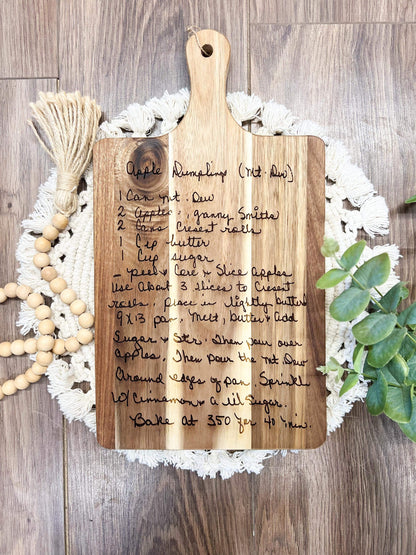 Apple Dumplings (Mt. Dew)
1 Can Mt. Dew
2 Apples, granny Smiths
2 Cans Cresent rolls
1 Cup butter
1 Cup sugar
- peel & Core & Slice apples
Use About 3 slices to Cresent
rolls, place in lightly butter
9x13 pan, Melt, butter & add
Sugar & Stir. Then pour over
apples, Then pour the Mt. Dew
Around edges of pan. Sprinkl
w/ Cinnamon & a lil Sugar.
Bake at 350 for 40 min.